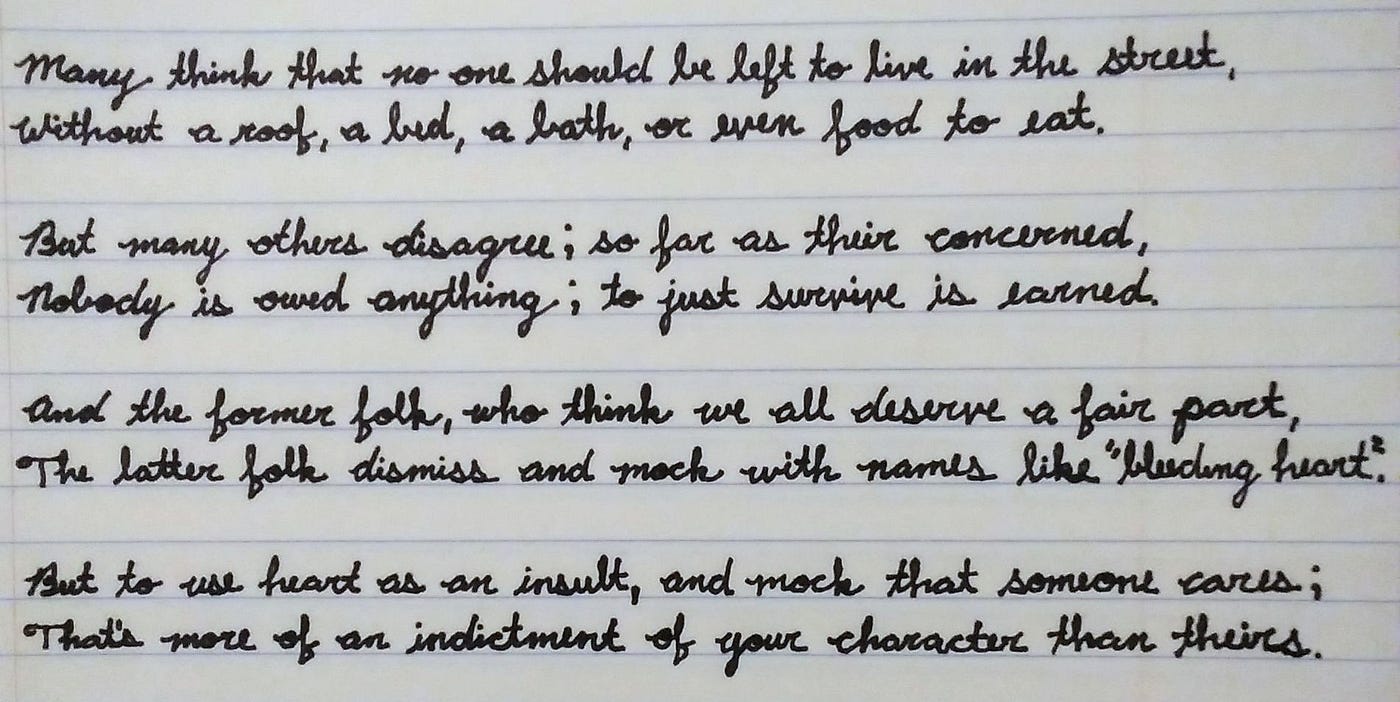 Many think that no one should be left to live in the street,
Without a roof, a bed, a bath, or even food to eat.
But many others disagree; so far as their concerned,
Nobody is owed anything; to just survive is earned.
And the former folk, who think we all deserve a fair part,
The latter folk dismiss and mock with names like "bleeding heart".
But to use heart as an insult, and mock that someone cares;
That's more of an indictment of your character than theirs.